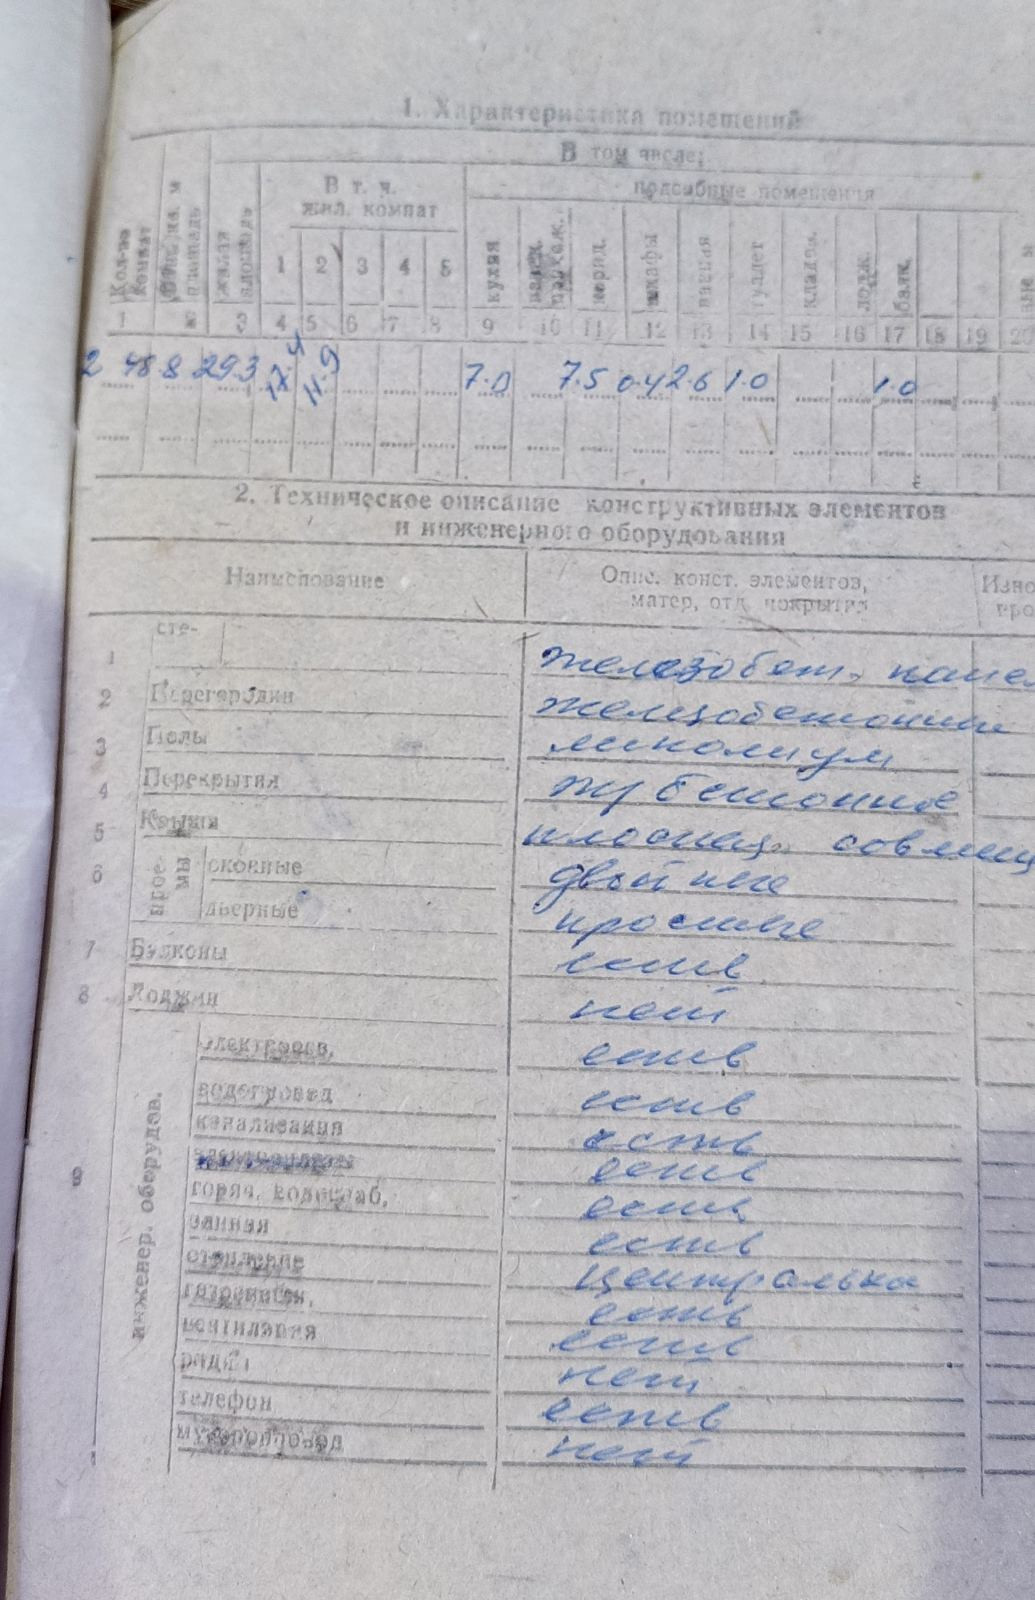 1. Характеристика помещений
В том числе:
В т. ч.
жил. комнат
подсобные помещения
Кол-во комнат
площадь
жилая площадь
1 2 3 4 5
кухня
корид.
шкафы
ванная
туалет
кладов.
лодж.
балк.
1 3 4 5 6 7 8 9 10 11 12 13 14 15 16 17 18 19 20
2 48.8 29.3 17.4 11.9 7.0 7.5 0.4 2.6 1.0 1.0
2. Техническое описание конструктивных элементов
и инженерного оборудования
Наименование
Опис. конст. элементов,
матер, отд. покрытия
Изно
про
1 сте- железобет. панел
2 Перегородки железобетонные
3 Полы линолиум
4 Перекрытия ж/бетонные
5 Крыша совмещ
6 прое-мы оконные двойные
дверные простые
7 Балконы есть
8 Лоджии нет
9 инженер. оборудов.
электроосв. есть
водопровод есть
канализация есть
есть
горяч. водоснаб. есть
ванная есть
отопление централько
газоснабж. есть
вентиляция есть
радио нет
телефон есть
мусоропровод нет